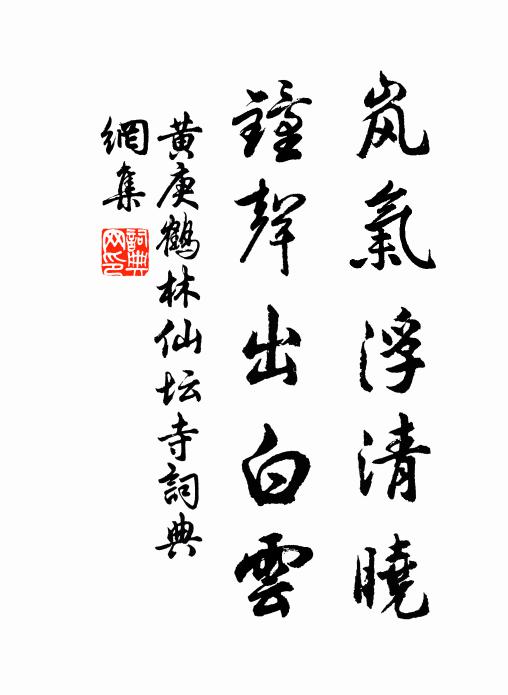 岚氣浮清曉
鐘聲出白雲
黄庚鶴林仙坛寺詞典
網集
詞典
网印